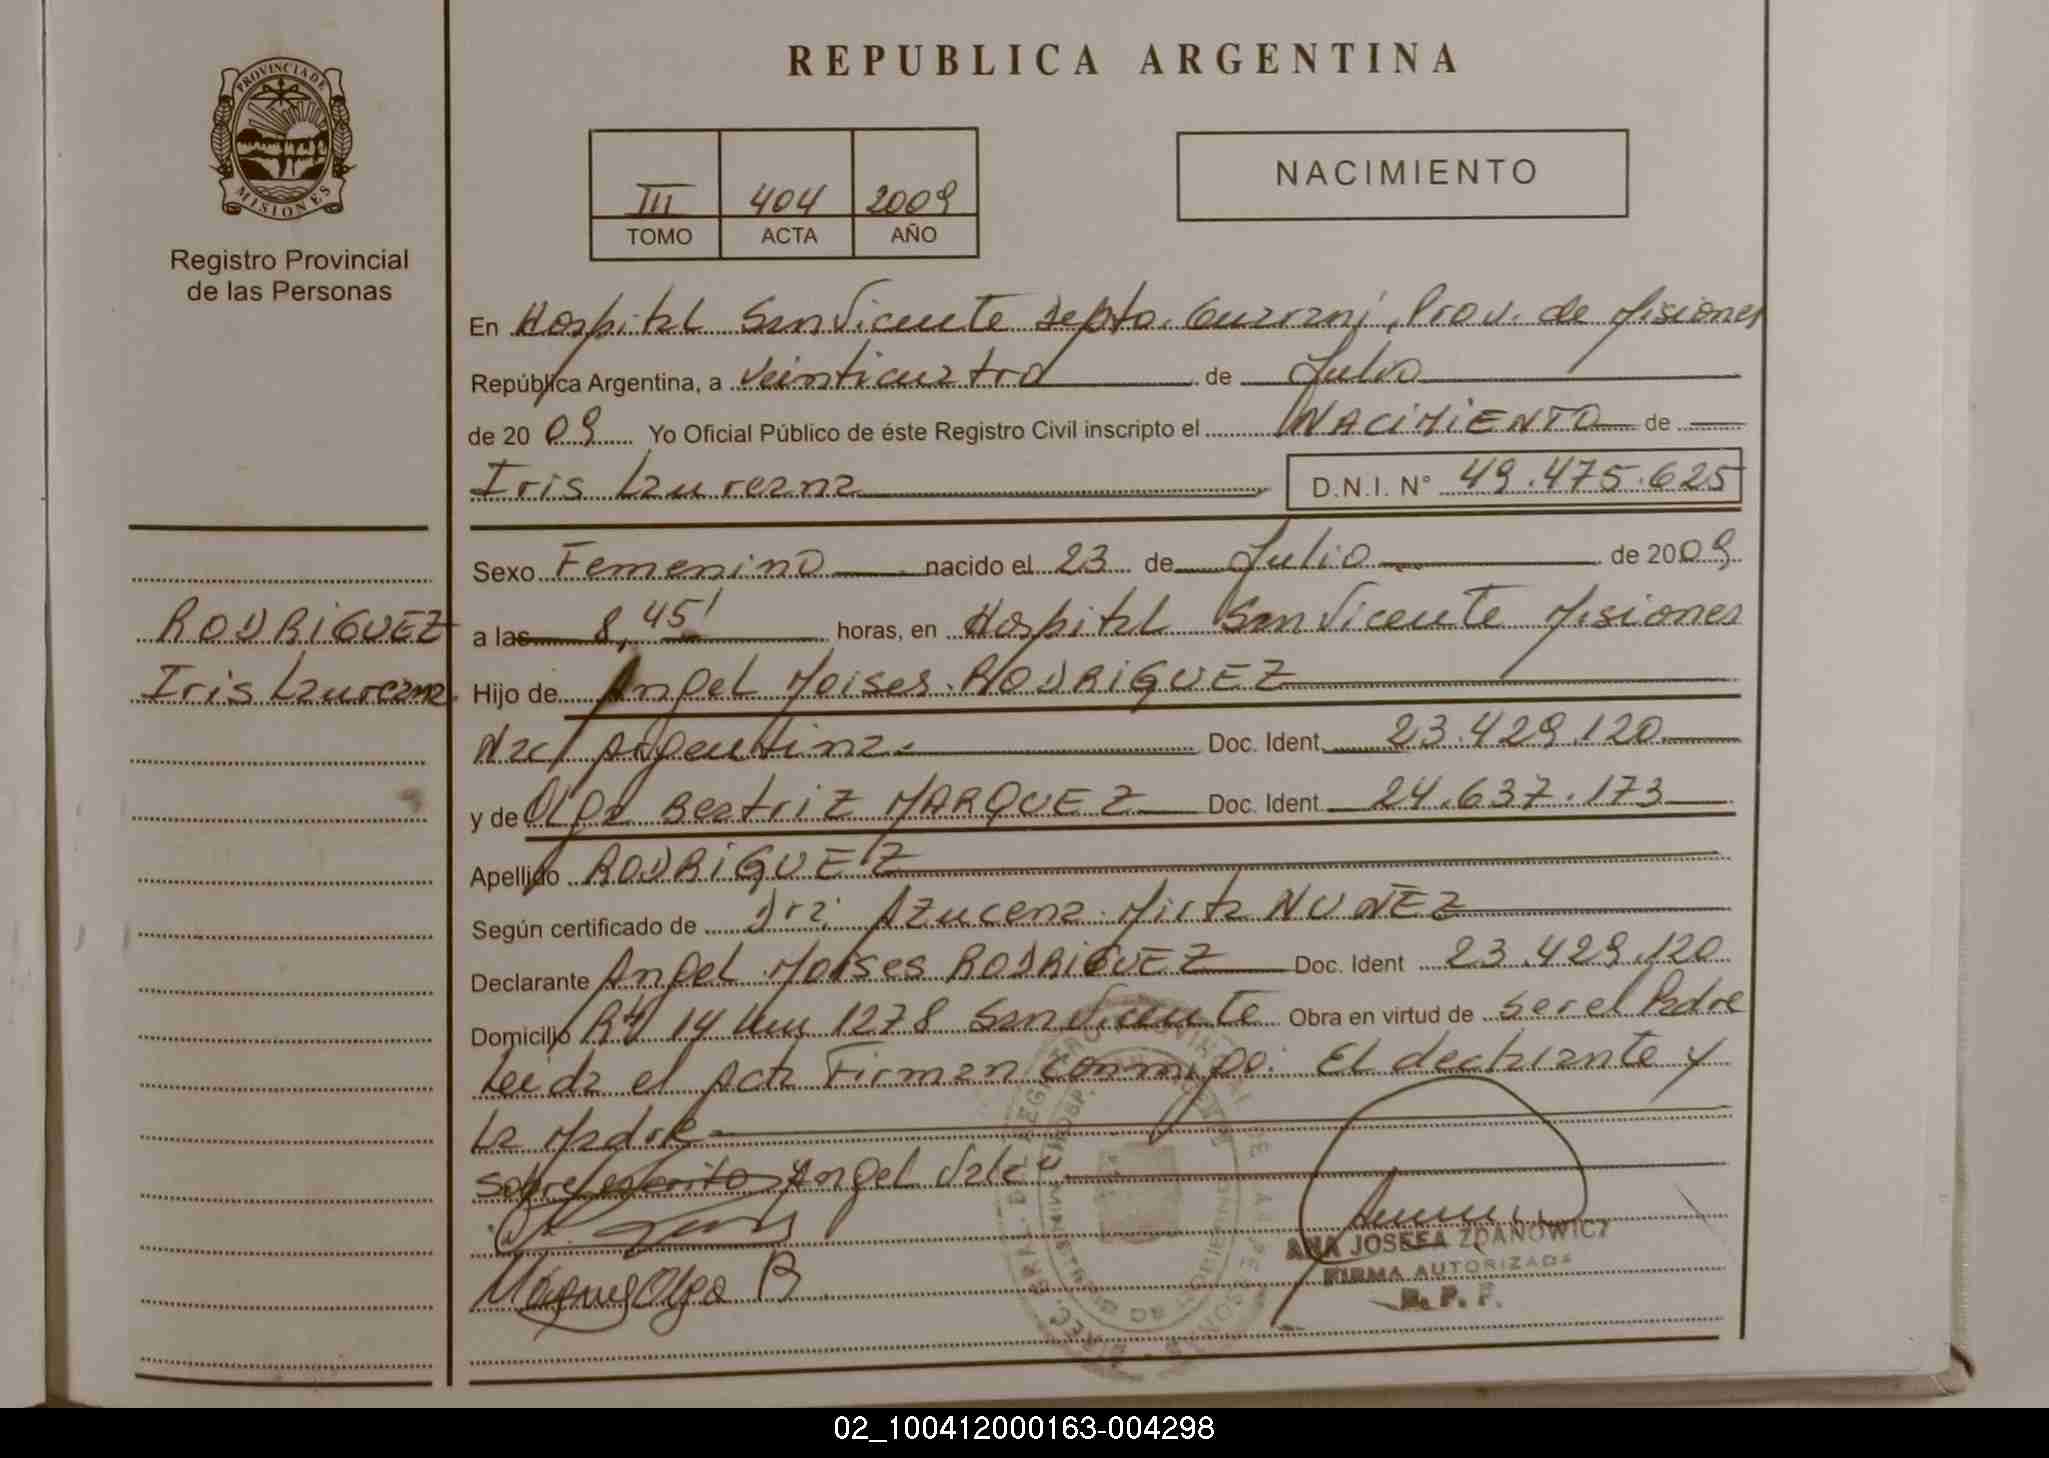 PROVINCIA DE
MISIONES
Registro Provincial
de las Personas
RODRIGUEZ
Iris Laureana
REPUBLICA ARGENTINA
III 404 2009
TOMO ACTA AÑO
NACIMIENTO
En Hospital San Vicente Depto. Guarani, Prov. de Misiones
República Argentina, a veinticuatro de Julio
de 20 09 Yo Oficial Público de éste Registro Civil inscripto el NACIMIENTO de
Iris Laureana D.N.I. N° 49.475.625
Sexo Femenino nacido el 23 de Julio de 2009
a las 8,45' horas, en Hospital San Vicente Misiones
Hijo de Angel Moises RODRIGUEZ
Nac/ Argentina Doc. Ident 23.429.120
y de Olga Beatriz MARQUEZ Doc. Ident 24.637.173
Apellido RODRIGUEZ
Según certificado de Dra. Azucena Mirta NUÑEZ
Declarante Angel Moises RODRIGUEZ Doc. Ident 23.429.120
Domicilio 14 Km 1278 San Vicente Obra en virtud de Ser el Padre
Leida el Acta Firman conmigo: El declarante y
La Madre
Sobre escrito Angel Vale
Márquez Olga B
ANA JOSEFA ZDANOWICZ
FIRMA AUTORIZADA
R. P. P.
02_100412000163-004298